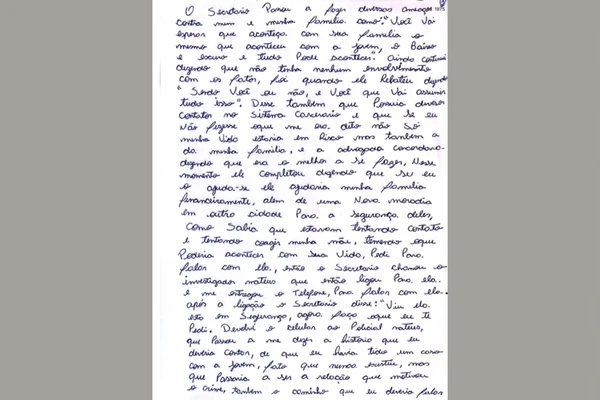 O Secretario Passou a fazer diversas ameaças
contra mim e minha familia como: "Você Vai
esperar que aconteça com sua familia o
mesmo que aconteceu com a jovem, o Baixo
e escuro e tudo Pode acontecer". ainda continuei
dizendo que não tinha nenhum envolvimento
com os fatos, foi quando ele Rebateu dizendo
"Sendo Você ou não, e Você que Vai assumir
tudo isso". Disse também que Possuia diversos
contatos no Sistema Carcerario e que se eu
Não fizesse oque me era dito não Só
minha Vida estaria em Risco mas também a
da minha familia, e a advogada concordava
dizendo que era o melhor a se fazer, Nesse
momento ele Completou dizendo que se eu
o ajuda-se ele ajudaria minha familia
financeiramente, alem de uma Nova moradia
em outra cidade Para a segurança deles,
como Sabia que estavam tentando contato
e tentando coagir minha mãe, temendo oque
Poderia acontecer com sua Vida, Pedi Para
falar com ela, então o Secretario chamou o
investigador mateus que então ligou Para ela
e me entregou o Telefone, Para falar com ela.
após a ligação o Secretario disse: "Viu ela
esta em Segurança, agora faça oque eu te
Pedi. Devolvi o celular ao Policial mateus,
que Passou a me dizer a história que eu
deveria contar, de que eu havia tido um caso
com a jovem, fato que nunca existiu, mas
que Passaria a ser a relação que motivou
o crime, também o caminho que eu deveria falar